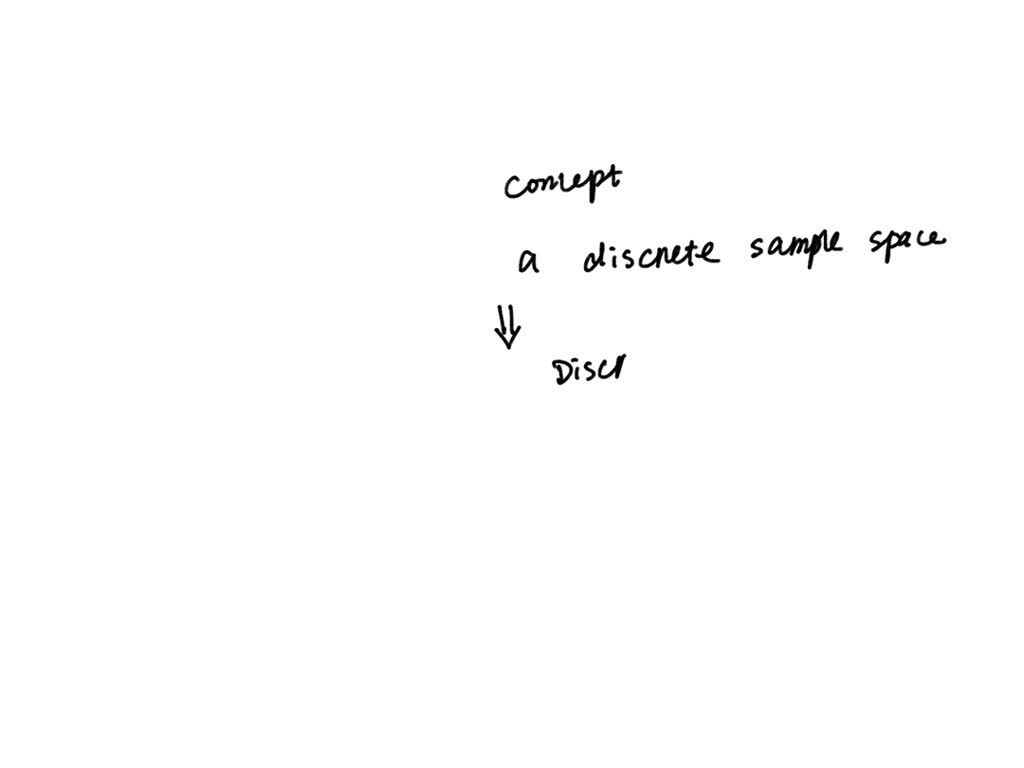 concept
a discrete sample space
⇓
Discr